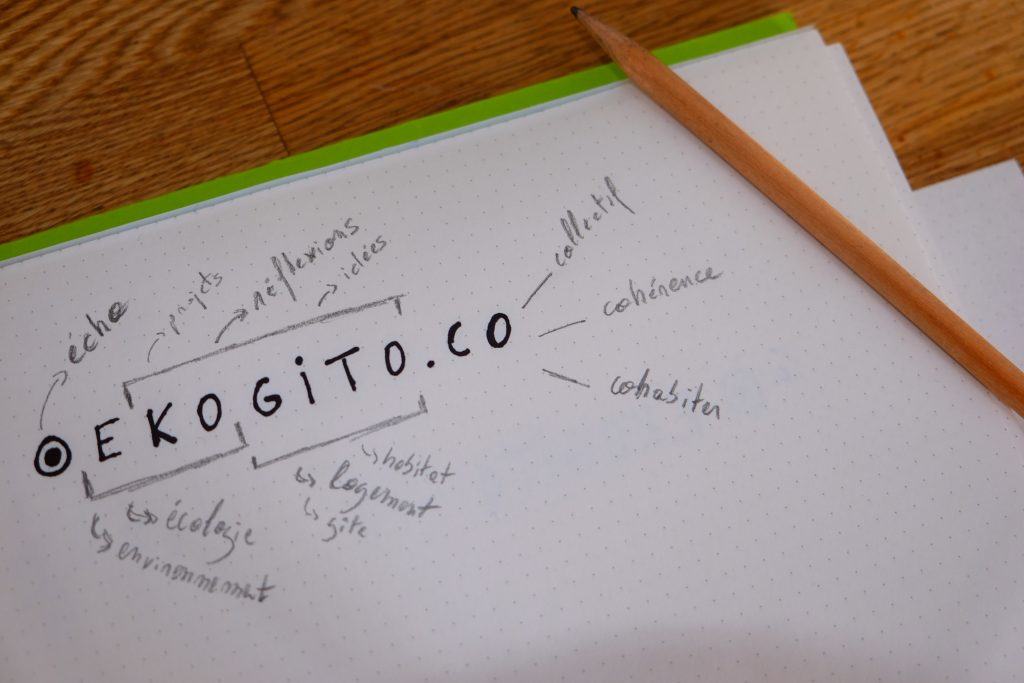 écho
projets
réflexions
idées
EKOGiTO.CO
collectif
cohérence
cohabiter
écologie
environnement
habitat
logement
gite